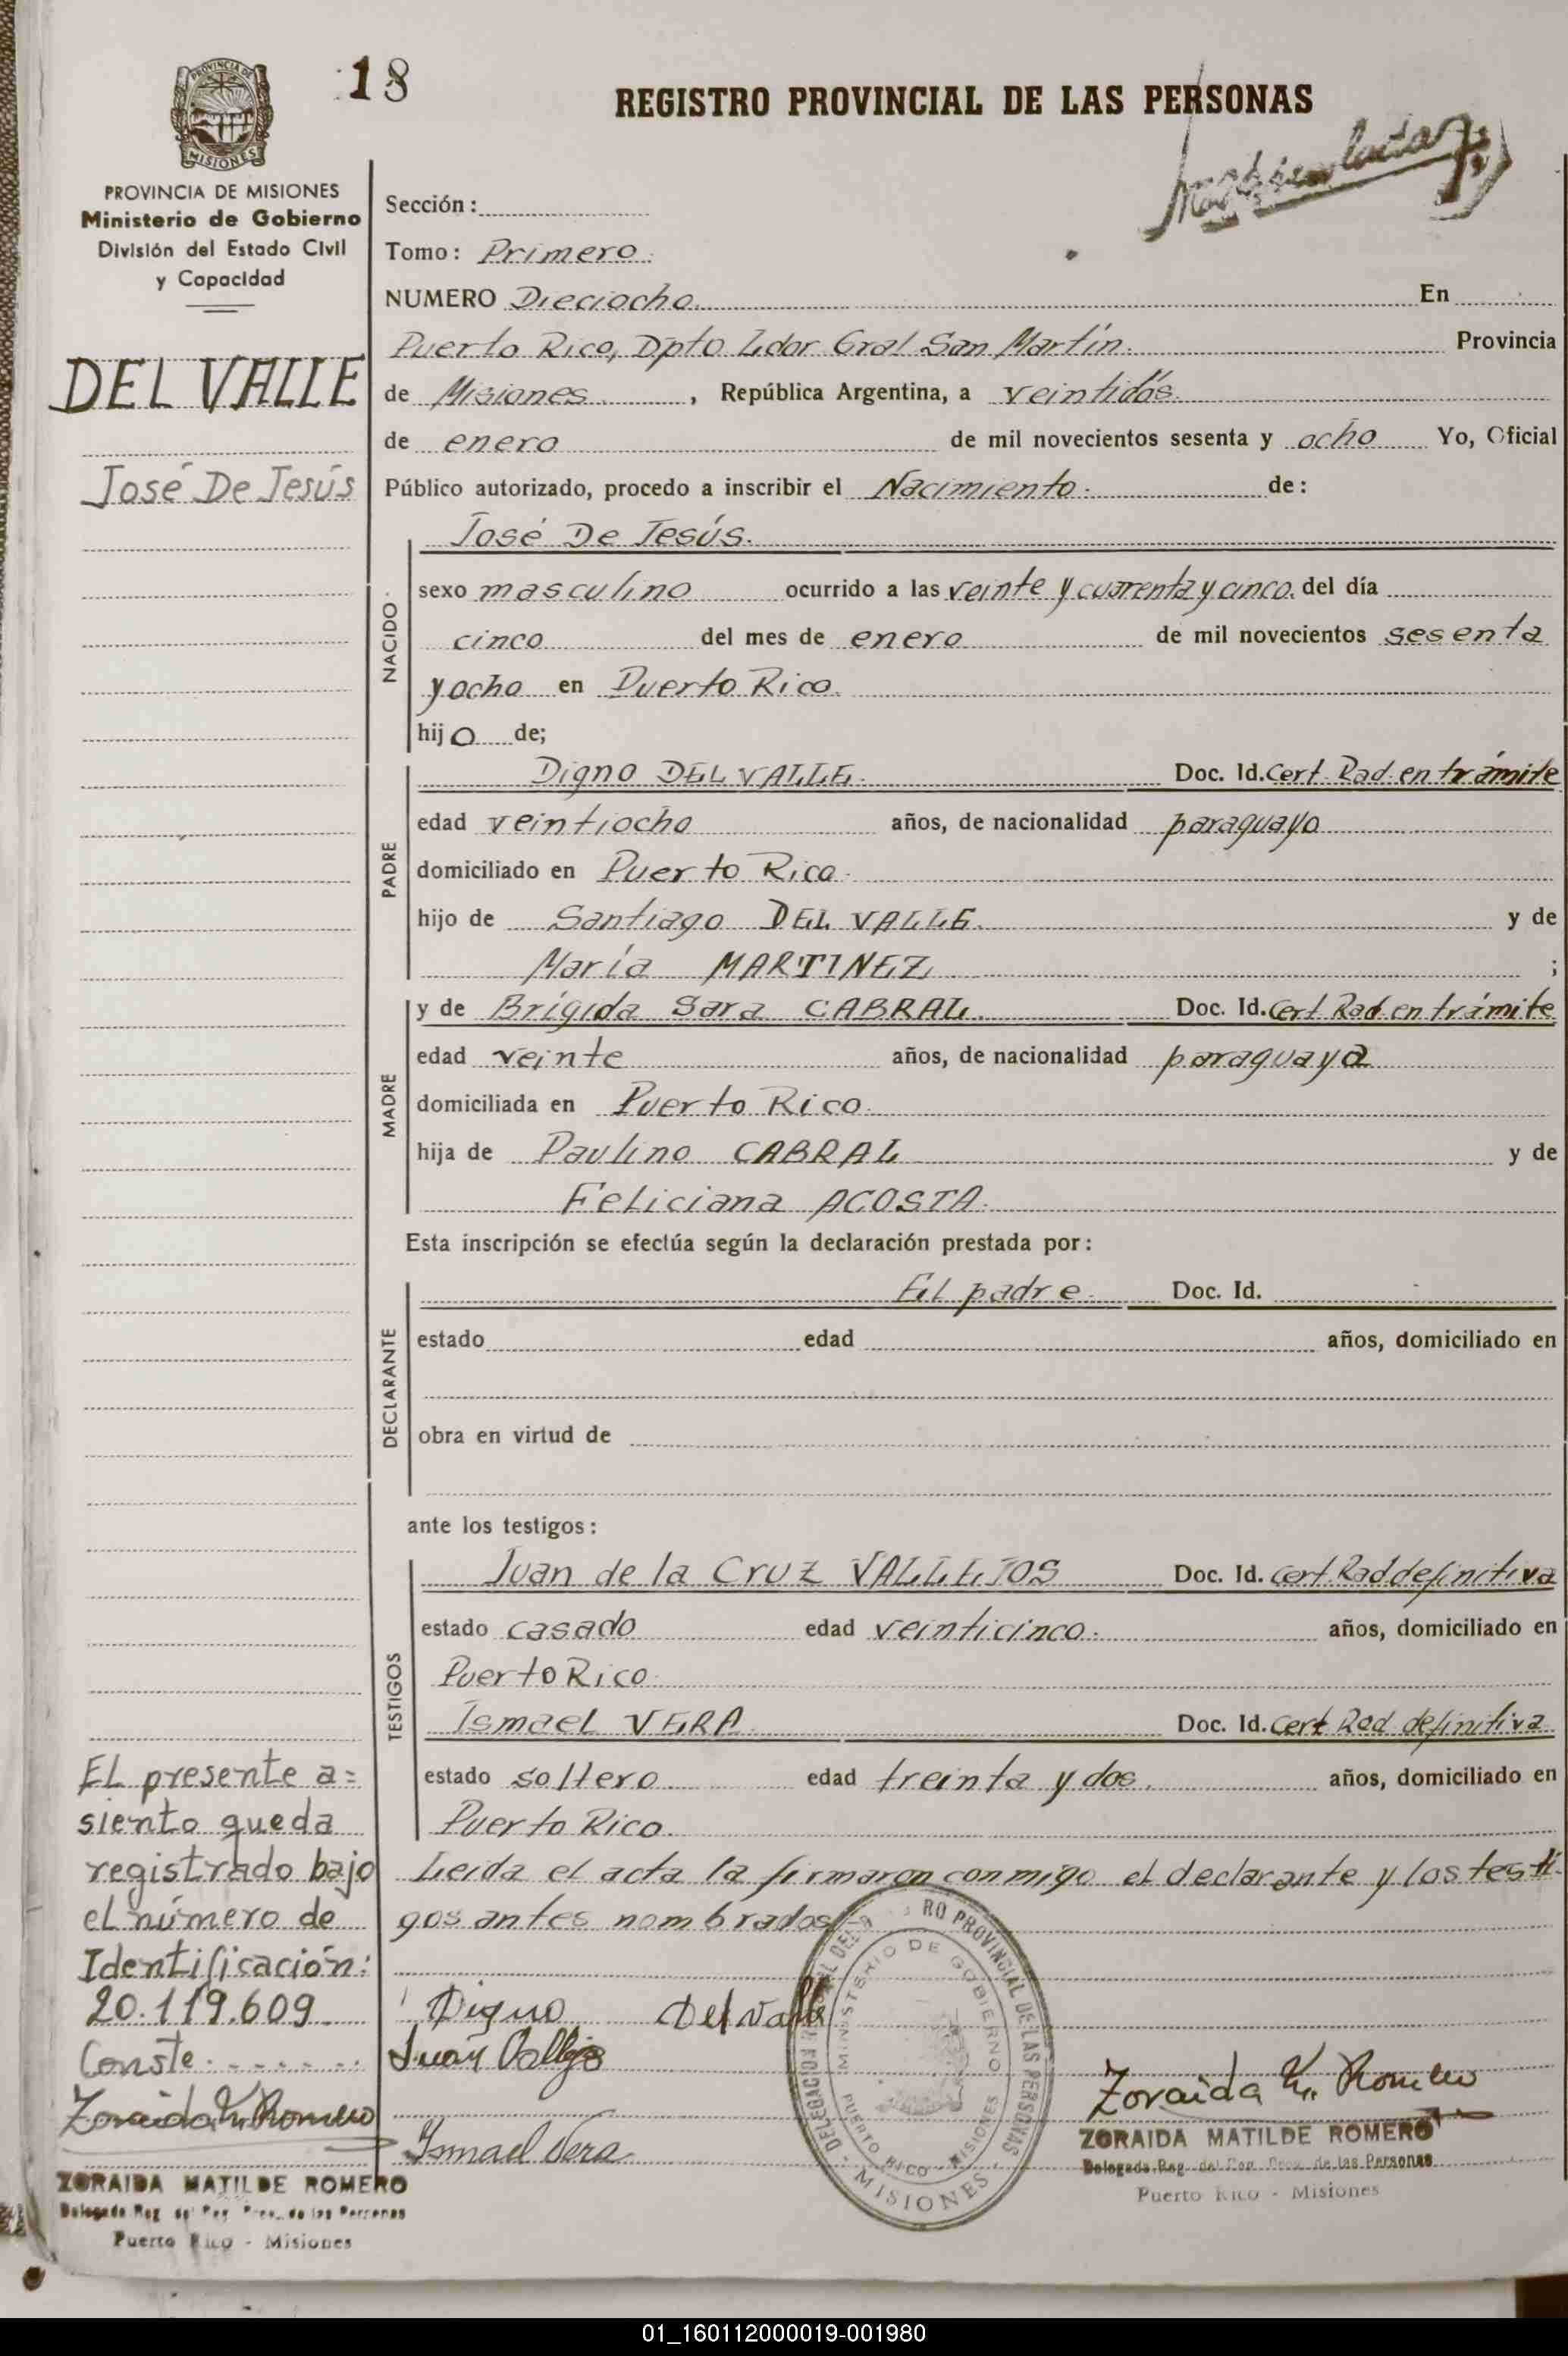 18
REGISTRO PROVINCIAL DE LAS PERSONAS
PROVINCIA DE
MISIONES
PROVINCIA DE MISIONES
Ministerio de Gobierno
División del Estado Civil
y Capacidad
DEL VALLE
José De Jesús
Sección:
Tomo: Primero.
NUMERO Dieciocho. En
Puerto Rico, Dpto Ldor Gral San Martín. Provincia
de Misiones. , República Argentina, a veintidós.
de enero de mil novecientos sesenta y ocho Yo, Oficial
Público autorizado, procedo a inscribir el Nacimiento. de:
José De Jesús.
NACIDO
sexo masculino ocurrido a las veinte y cuarenta y cinco. del día
cinco del mes de enero de mil novecientos sesenta
y ocho en Puerto Rico.
hijo de;
PADRE
Digno DEL VALLE. Doc. Id. Cert. Rad. en trámite
edad veintiocho años, de nacionalidad paraguayo
domiciliado en Puerto Rico.
hijo de Santiago DEL VALLE. y de
María MARTINEZ ;
MADRE
y de Brígida Sara CABRAL. Doc. Id. Cert. Rad. en trámite
edad veinte años, de nacionalidad paraguaya
domiciliada en Puerto Rico.
hija de Paulino CABRAL y de
Feliciana ACOSTA.
Esta inscripción se efectúa según la declaración prestada por:
DECLARANTE
El padre. Doc. Id.
estado edad años, domiciliado en
obra en virtud de
ante los testigos:
TESTIGOS
Juan de la Cruz VALLEJOS Doc. Id. Cert. Rad definitiva
estado casado edad veinticinco. años, domiciliado en
Puerto Rico.
Ismael VERA. Doc. Id. Cert Rad definitiva
estado soltero edad treinta y dos. años, domiciliado en
Puerto Rico.
Leída el acta la firmaron conmigo el declarante y los testi-
gos antes nombrados
El presente a=
siento queda
registrado bajo
el número de
Identificación:
20.119.609
Conste.
Zoraida M. Romero
ZORAIDA MATILDE ROMERO
Delegada Reg. del Reg. Prov. de las Personas
Puerto Rico - Misiones
Digno Del Valle
Juan Vallejos
Ismael Vera
RO PROVINCIAL DE LAS PERSONAS
DELEGACION
MINISTERIO DE GOBIERNO
PUERTO RICO - MISIONES
- MISIONES -
Zoraida M. Romero
ZORAIDA MATILDE ROMERO
Delegada Reg. del Reg. Prov. de las Personas
Puerto Rico - Misiones
01_160112000019-001980